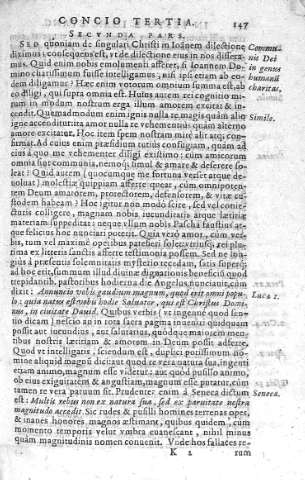 CONCIO TERTIA.
147
SECVNDA PARS.
SED quoniam de singulari Christi in Ioannem dilectione
diximus: consequens est, vt de dilectione eius in nos disseramus.
Quid enim nobis emolumenti afferet, si Ioannem Domino
charissimum fuisse intelligamus, nisi ipsi etiam ab eodem
diligamur? Hæc enim votorum omnium summa est, ab
eo diligi, qui supra omnia est. Huius autem rei cognitio mirum
in modum nostrum erga illum amorem excitat & incendit.
Quemadmodum enim ignis nulla re magis quàm alio
igne accenditur: ita amor nulla re vehementiùs quàm alterno
amore excitatur. Hoc item spem nostram mirè alit atque confirmat.
Ad cuius enim præsidium tutiùs confugiam, quàm ad
eius à quo me vehementer diligi existimo: cùm amorcum
omnia sint communia, nemo simul & amare & deserere soleat?
Quid autem
molestiæ quippiam afferre queat, cùm omnipotentem
Deum amatorem, protectorem, defensorem, & vitæ custodem
habeam? Hoc igitur non modò scire, sed vel coniecturis
colligere, magnam nobis iucunditatis atque lætitiæ
materiam suppeditat: neque vllum nobis Pascha faustius atque
felicius hoc nunciari poterit. Quia verò amor, cùm verbis,
tum vel maximè operibus patefieri solet:
rima ex litteris sanctis afferre testimonia possem. Sed ne longiùs
à præsentis solemnitatis mysterio recedam, satis superque
ad hoc erit, summum illud diuinæ dignationis beneficiū quod
trepidantib. pastoribus hodierna die Angelus nunciauit, cùm
dixit: Annuncio vobis gaudium magnum, quod erit omni populo:
quia natus est vobis hodie Saluator, qui est Christus Dominus,
in ciuitate Dauid. Quibus verbis (vt ingenuè quod sentio
dicam) nescio an in tota sacra pagina inueniri quidquam
possit aut iucundius, aut salutarius, quodque maiorem mentibus
nostris lætitiam & amorem in Deum possit adferre.
Quod vt intelligatis, sciendum est, duplici potissimùm nomine
aliquid magnū dici: aut quod re vera natura sua, ingenti
etiam animo, magnum esse videtur: aut quod pusillo animo,
ob eius exiguitatem & angustiam, magnum esse putatur, cùm
tamen re vera paruum sit. Prudenter enim à Seneca dictum
est: Multis rebus non ex natura sua, sed ex paruitate nostra
magnitudo accedit. Sic rudes & pusilli homines terrenas opes,
& inanes honores magnos æstimant, quibus quidem, cùm
momento temporis velut vmbra euanescant, nihil minus
quàm magnitudinis nomen conuenit. Vnde hos fallaces re-
K 2
rum
Communis Dei
in genus
humanū
charitas.
Simile.
Luca 2.
Seneca.